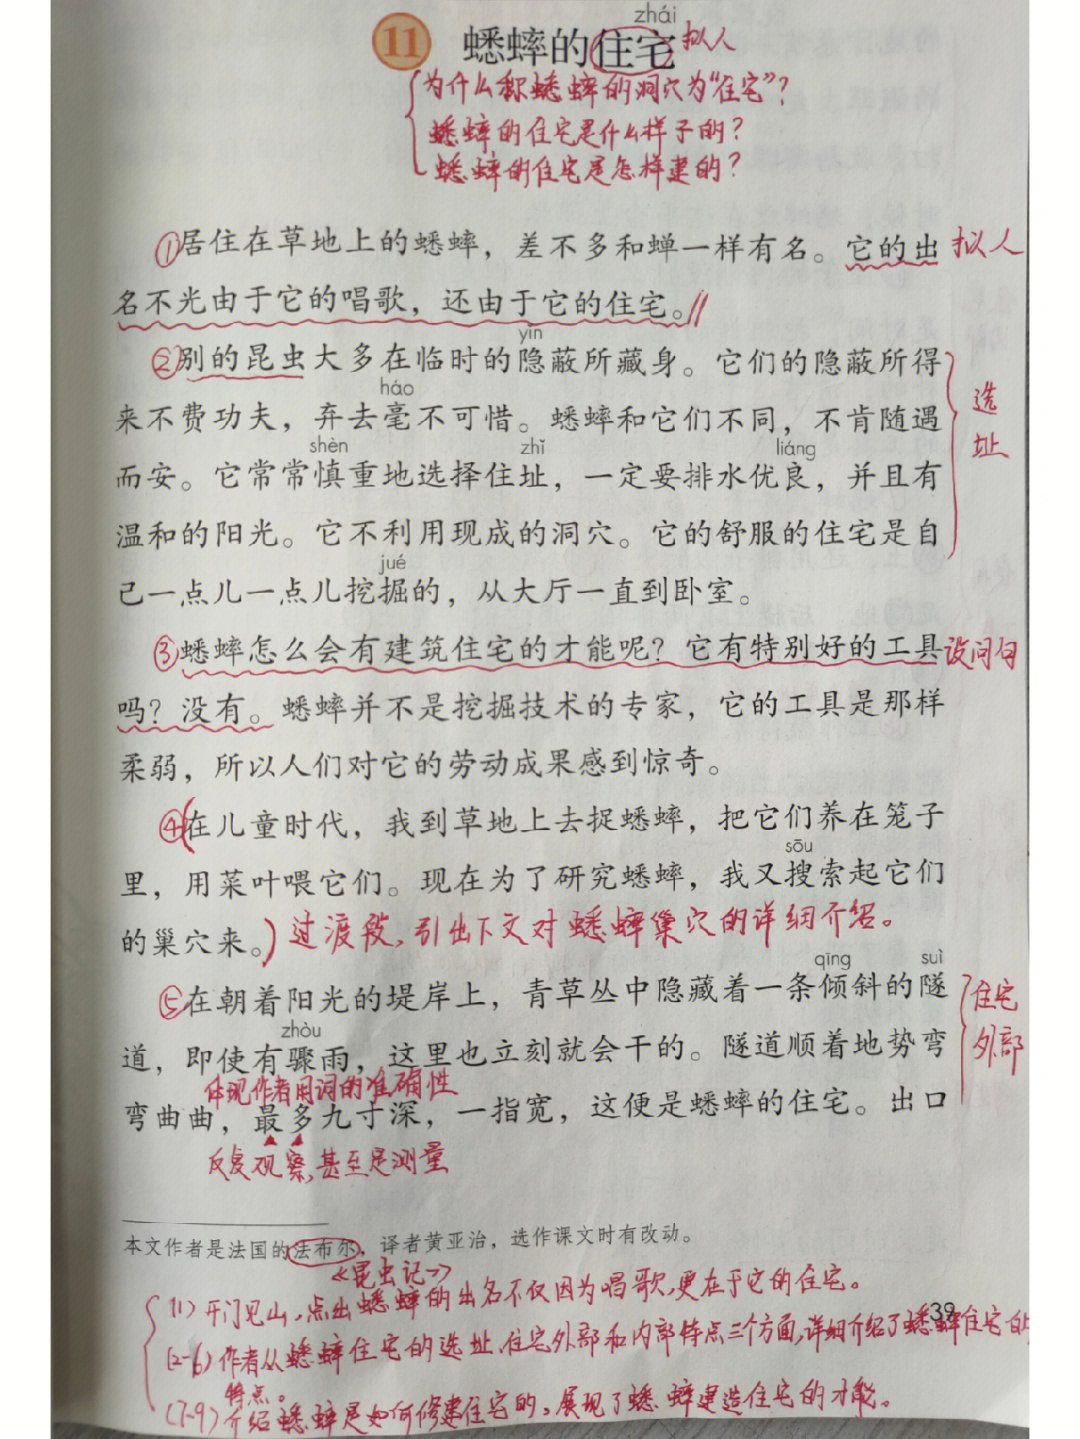 zhái
11 蟋蟀的住宅 拟人
为什么称蟋蟀的洞穴为“住宅”?
蟋蟀的住宅是什么样子的?
蟋蟀的住宅是怎样建的?
①居住在草地上的蟋蟀，差不多和蝉一样有名。它的出 拟人
名不光由于它的唱歌，还由于它的住宅。
yǐn
②别的昆虫大多在临时的隐蔽所藏身。它们的隐蔽所得
háo
来不费功夫，弃去毫不可惜。蟋蟀和它们不同，不肯随遇
选址
shèn zhǐ liáng
而安。它常常慎重地选择住址，一定要排水优良，并且有
温和的阳光。它不利用现成的洞穴。它的舒服的住宅是自
jué
己一点儿一点儿挖掘的，从大厅一直到卧室。
③蟋蟀怎么会有建筑住宅的才能呢？它有特别好的工具 设问句
吗？没有。蟋蟀并不是挖掘技术的专家，它的工具是那样
柔弱，所以人们对它的劳动成果感到惊奇。
④在儿童时代，我到草地上去捉蟋蟀，把它们养在笼子
sōu
里，用菜叶喂它们。现在为了研究蟋蟀，我又搜索起它们
的巢穴来。 过渡段，引出下文对蟋蟀巢穴的详细介绍。
qīng suì
⑤在朝着阳光的堤岸上，青草丛中隐藏着一条倾斜的隧
住宅
外部
zhòu
道，即使有骤雨，这里也立刻就会干的。隧道顺着地势弯
体现作者用词的准确性
弯曲曲，最多九寸深，一指宽，这便是蟋蟀的住宅。出口
反复观察，甚至是测量
本文作者是法国的法布尔，译者黄亚治，选作课文时有改动。
《昆虫记》
(1) 开门见山，点出蟋蟀的出名不仅因为唱歌，更在于它的住宅。
39
(2-6) 作者从蟋蟀住宅的选址、住宅外部和内部特点三个方面，详细介绍了蟋蟀住宅的
特点。
(7-9) 介绍蟋蟀是如何修建住宅的，展现了蟋蟀建造住宅的才能。